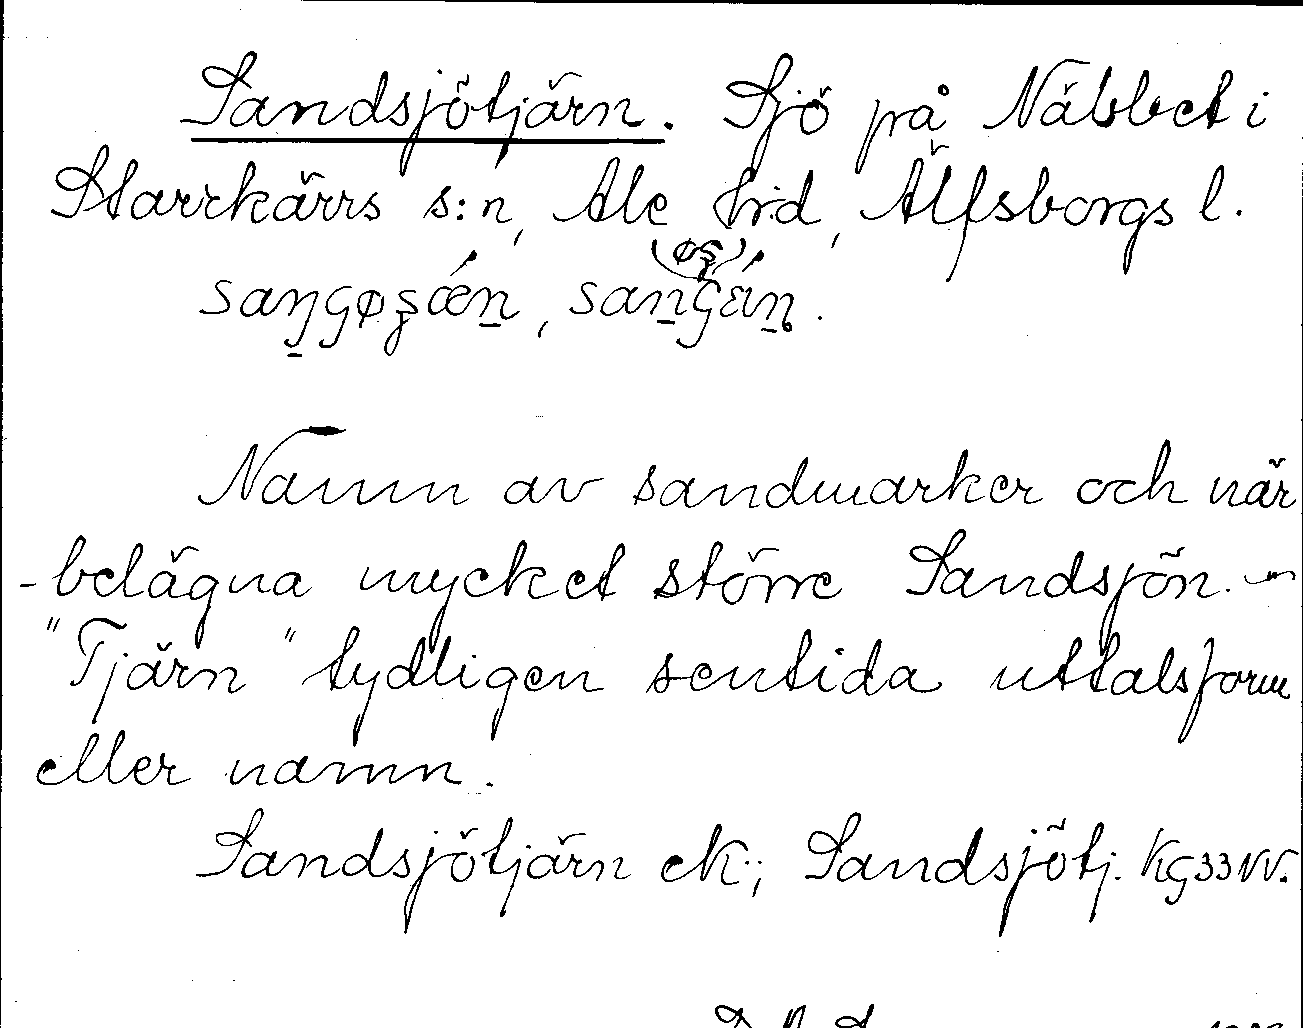 Sandsjötjärn. Sjö på Näbbet i
Starrkärrs s:n, Ale hrd, Älfsborgs l.
Namn av sandmarker och när
-belägna mycket större Sandsjön. —
"Tjärn" tydligen sentida uttalsform
eller namn.
Sandsjötjärn ek.; Sandsjötj. KG33NV.